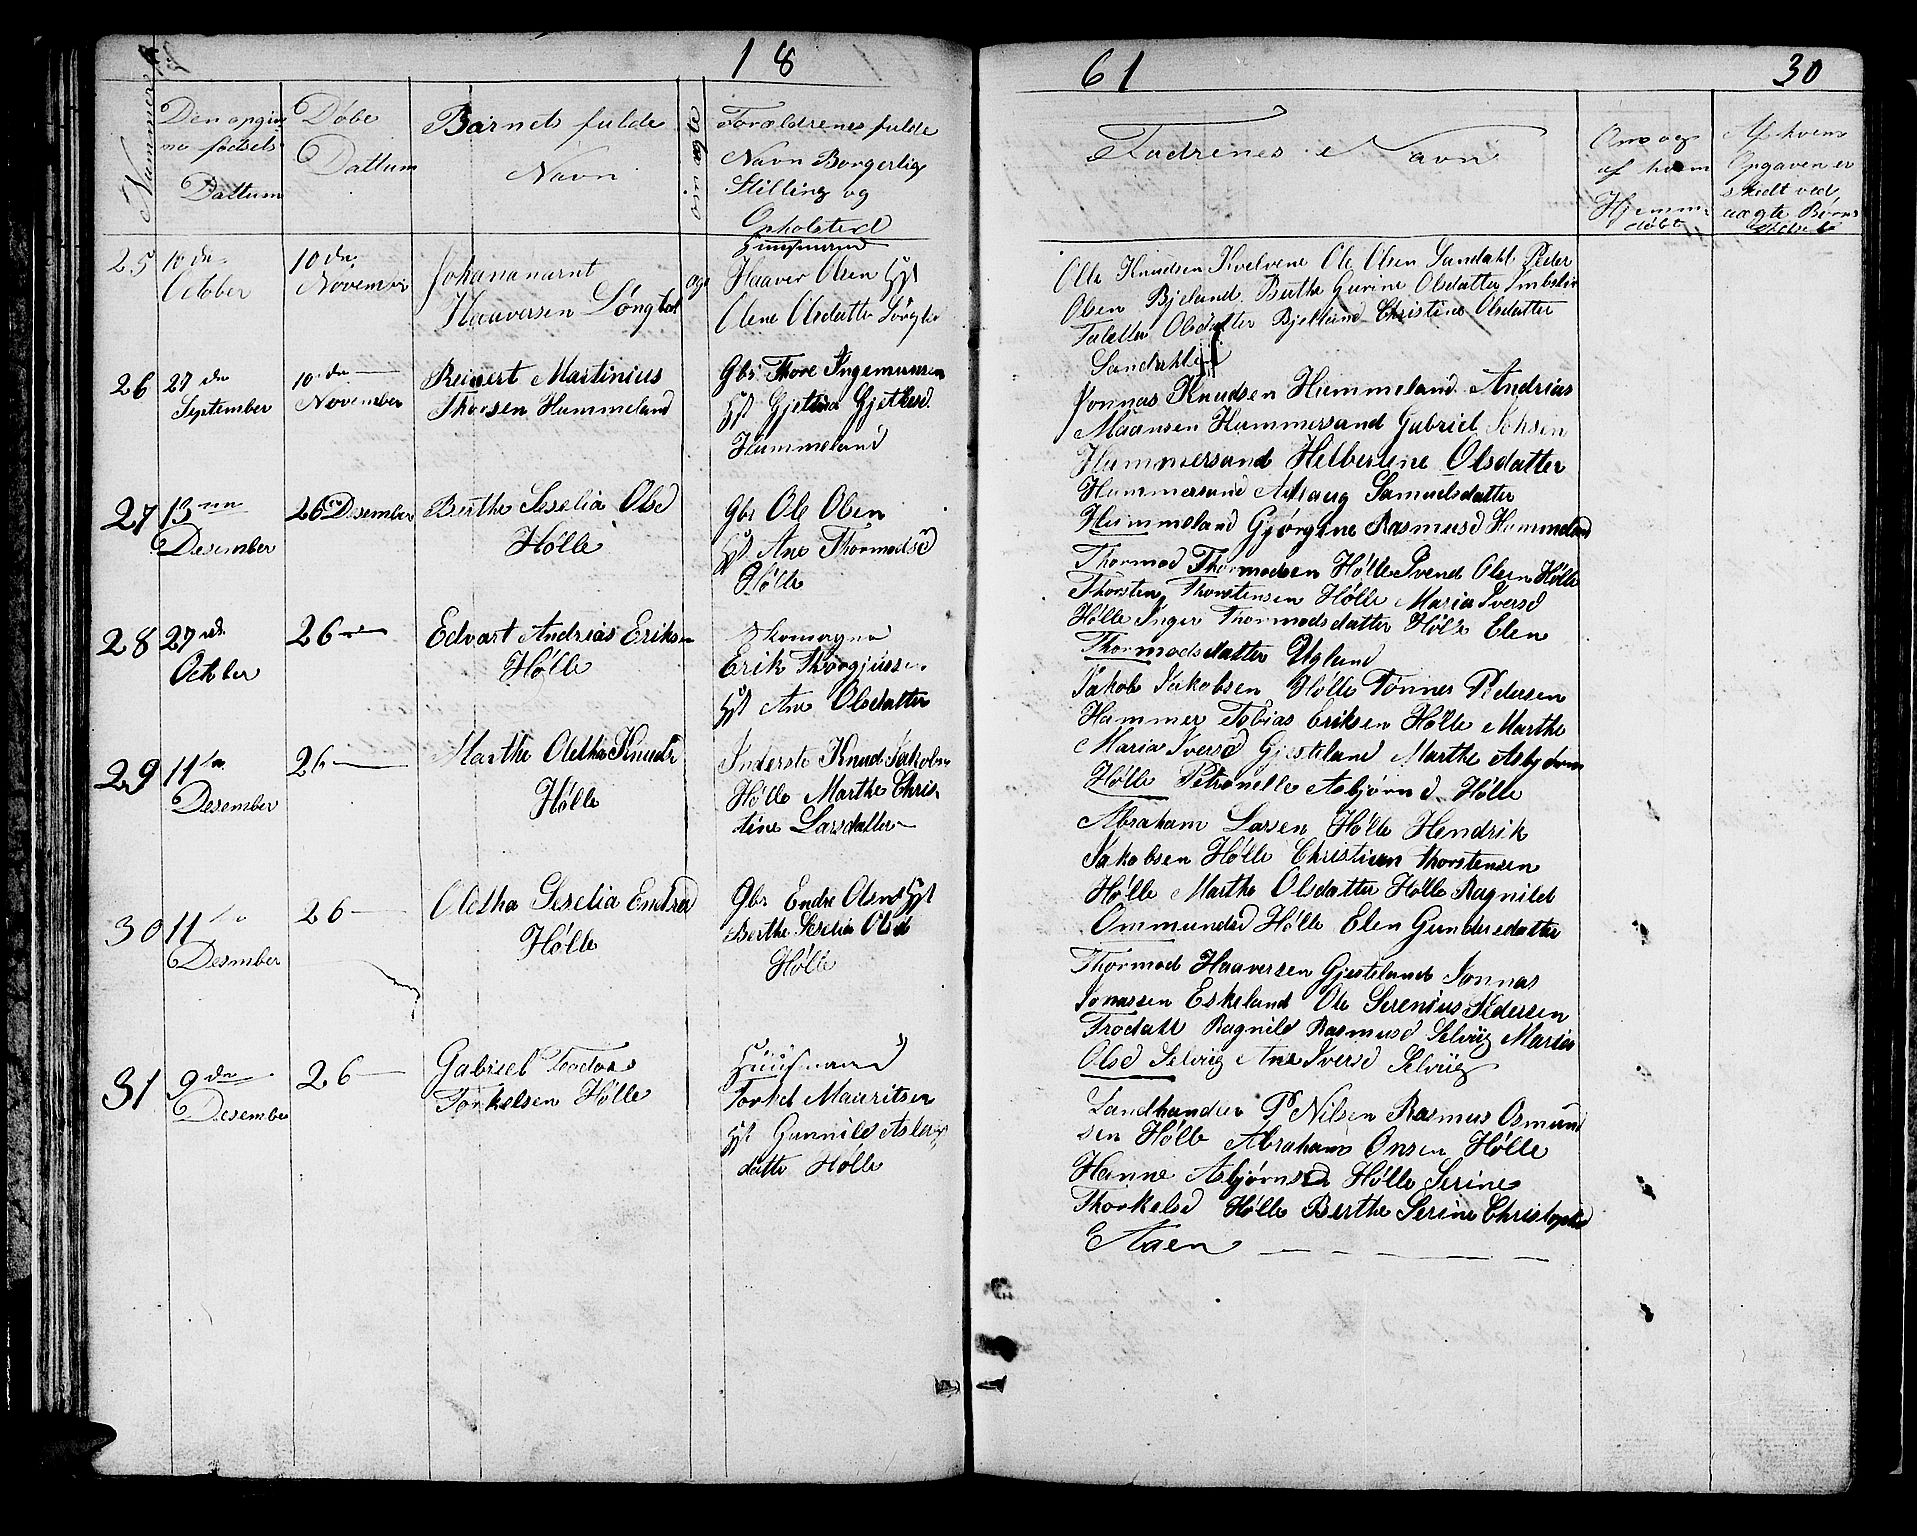 18
61
30
Nummer
Den opgiv
ne fødsels
Dattum
Døbe
Dattum
Barnets fulde
Navn
Forældrenes fulde
Navn Borgerlig
Stilling og
Opholsted
Fadrenes Navn
Om og
af hvem
Hjemme
døbt
Af hvem
Opgaven er
skedt ved
uægte Børns
25
10de
October
10de
November
Johan
Haaversen
ægt
Huusmand
Haaver Olsen Hst
Olene Olsdatter
Olle Knudsen Kvelvene Ole Olsen Sandahl Peder
Olsen Bjeland Berthe Gurine Olsdatter
Taletta Olsdatter Bjelland Christine Olsdatter
Sandahl
26
27de
September
10de
November
Reinert Martinius
Thorsen Hummeland
Gbr Thore Ingemunsen
Hst Gjertrud
Hummeland
Jonnas Knudsen Hummeland Andrias
Maansen Hummersand Gabriel
Hummersand Helberlene Olsdatter
Hummersand Samuelsdatter
Hummeland Gjørgine Rasmusd Hummeland
27
13
Desember
26 Desember
Berthe Seselia Olsd
Hølle
Gbr Ole Olsen
Hst Ane Thormodsd
Hølle
Thormod Thormodsen Hølle Svend Olsen Hølle
Thorsten Thorstensen Hølle Maria Iversd
Hølle Inger Thormodsdatter Hølle Elen
Thormodsdatter Ugland
28
27de
October
26
Edvart Andrias Eriksen
Hølle
Skomagne
Erik
Hst Ane Olsdatter
Jakob Jakobsen Hølle Tønnes Pedersen
Hammer Tobias Eriksen Hølle Marthe
Maria Iversd Gjesteland Marthe Asbjørns
Hølle Petronelle Asbjørnd Hølle
29
11te
Desember
26
Marthe Oletha Knuds
Hølle
Inderste Knud Jakobsn
Hølle Marthe Chris
tine Larsdatter
Abraham Larsen Hølle Hendrik
Jakobsen Hølle Christian Thorstensen
Hølle Marthe Olsdatter Hølle Ragnild
Ommundsd Hølle Elen Gundersdatter
30
11te
Desmber
26
Oletha Seselia Endred
Hølle
Gbr Endre Olsen Hst
Berthe Seselia Olsd
Hølle
Thormod Haaversen Gjesteland Jonnas
Jonassen Eskeland Ole Serenius Pedersen
Trodall Ragnild Rasmusd Selvig Maria
Olsd Selvig Ane Iversd Selviig
31
9de
Desember
26
Gabriel Teodor
Torkelsen Hølle
Huusmand
Torkel Mauritsen
Hst Gunnild Aslag
datte Hølle
Landhandler P Nilsen Rasmus Osmund
sen Hølle Abraham Onsen Hølle
Hanne Asbjørnsd Hølle Serine
Thorkelsd Hølle Berthe Serine Christophd
Aaen